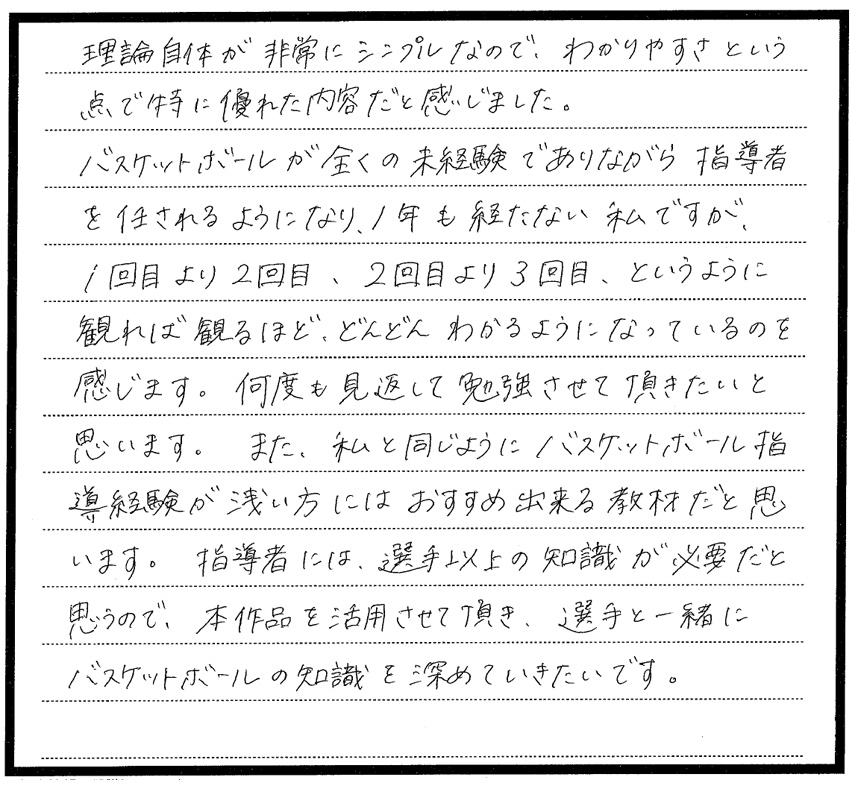 理論自体が非常にシンプルなので、わかりやすさという
点で特に優れた内容だと感じました。
バスケットボールが全くの未経験でありながら指導者
を任されるようになり、1年も経たない私ですが、
1回目より2回目、2回目より3回目、というように
観れば観るほど、どんどんわかるようになっているのを
感じます。何度も見返して勉強させて頂きたいと
思います。また、私と同じようにバスケットボール指
導経験が浅い方にはおすすめ出来る教材だと思
います。指導者には、選手以上の知識が必要だと
思うので、本作品を活用させて頂き、選手と一緒に
バスケットボールの知識を深めていきたいです。